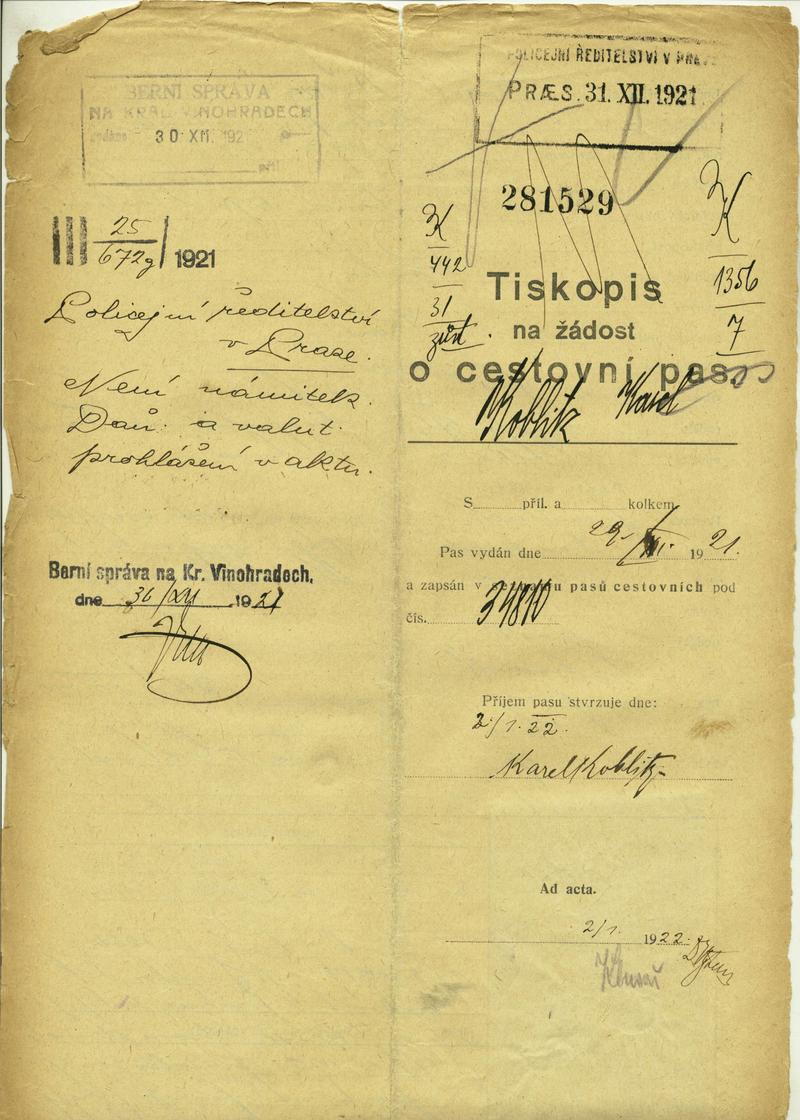 BERNÍ SPRÁVA
NA KRÁL. VINOHRADECH
30 XII. 192
příl.
III 25/672g 1921
Policejní ředitelství
v Praze.
Není námitek.
Daň. a valut.
prohlášení v aktu.
Berní správa na Kr. Vinohradech,
dne 30/XII 1921
POLICEJNÍ ŘEDITELSTVÍ V PRAZE
PRÆS. 31. XII. 1921
281529
K
442
31
K
1356
7
Tiskopis
na žádost
o cestovní pas
Koblitz Karel
S příl. a kolkem
Pas vydán dne 29/XII. 1921.
a zapsán v seznamu pasů cestovních pod
čís. 34810
Příjem pasu stvrzuje dne:
2/1. 22.
Karel Koblitz
Ad acta.
2/1. 1922.